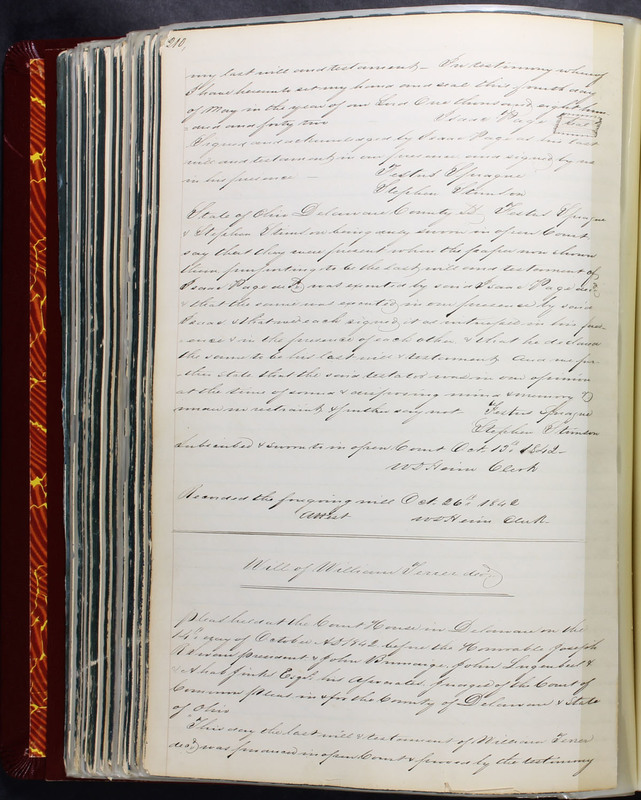 210,
my last will and testament – In testimony whereof
I have hereunto set my hand and seal this fourth day
of May in the year of our Lord One thousand eight hun
dred and forty two Isaac Page Seal
Signed and acknowledged by Isaac Page as his last
will and testament in our presence and signed by us
in his presence – Festus Sprague
Stephen Stimson
State of Ohio Delaware County SS, Festus Sprague
& Stephen Stimson being duly sworn in open Court
say that they were present when the paper now shown
them purporting to be the last will and testament of
Isaac Page decd was executed by said Isaac Page decd
& that the same executed in our presence by said
Isaac & that we each signed it as witnesses in his pres
ence & in the presence of each other & that he declared
the same to be his last will & testament, and we fur
ther state that the said testator was in our opinion
at the time of sound & disposing mind & memory &
under no restraint & further say not. Festus Sprague
Stephen Stimson
Subscribed & sworn to in open Court Oct 13th 1842–
Clerk
Recorded the foregoing will Oct. 26th 1842
Attest Clerk
Will of William decd
Pleas held at the Court House in Delaware on the
14th day of October AD 1842 before the Honorable Joseph
president & John John &
& Ahab Jinks Esqr his Associates Judges of the Court of
Common Pleas in & for the County of Delaware & State
of Ohio
This day the last will & testament of William
decd was produced in open Court & proved by the testimony